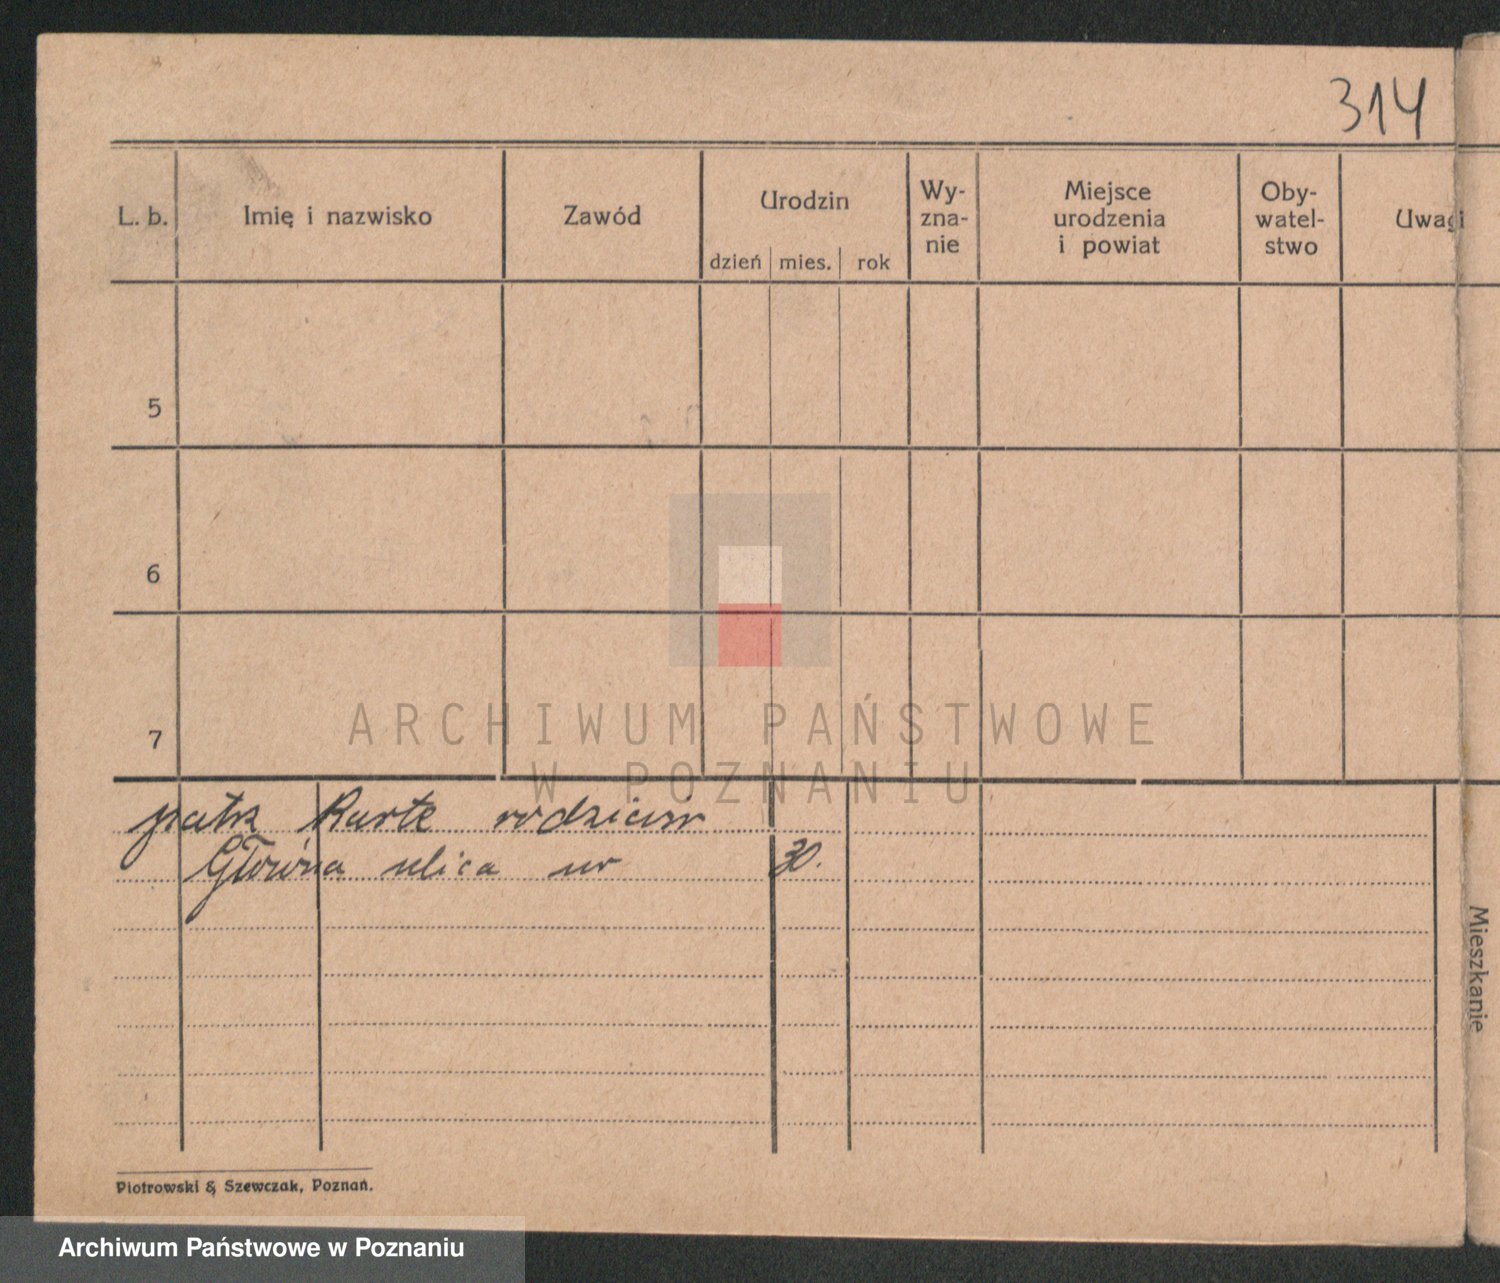 314
L. b. Imię i nazwisko Zawód Urodzin dzień mies. rok Wy-zna-nie Miejsce urodzenia i powiat Oby-watel-stwo Uwagi
5
6
7
ARCHIWUM PAŃSTWOWE
W POZNANIU
patrz Kartę rodziców
Główna ulica nr 30.
Mieszkanie
Piotrowski & Szewczak, Poznań.
Archiwum Państwowe w Poznaniu